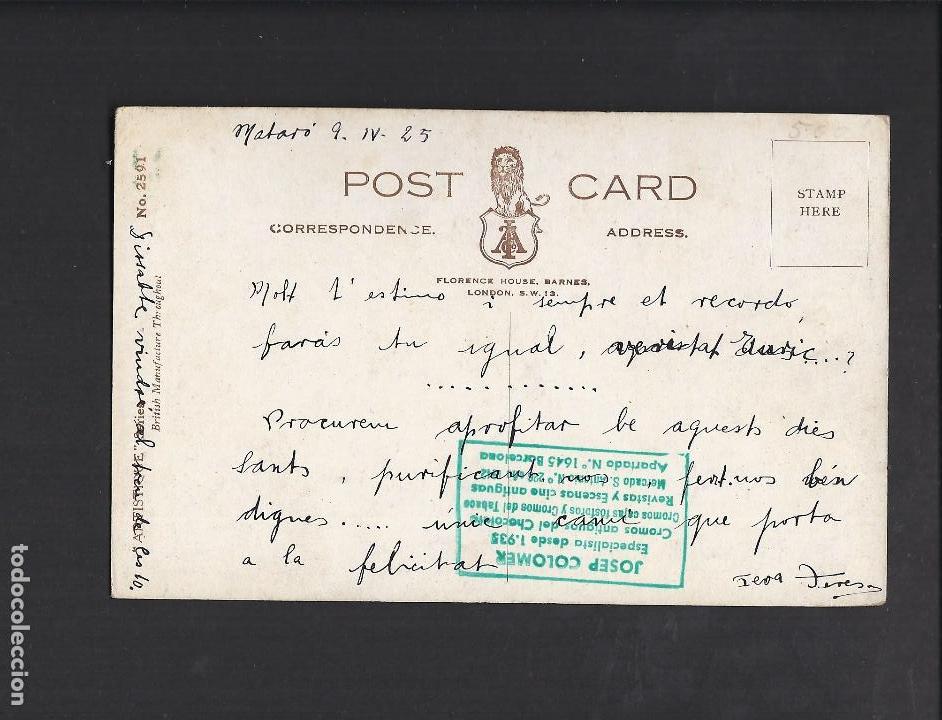 Mataró 9. IV. 25
5-
POST CARD
CORRESPONDENCE. ADDRESS.
STAMP
HERE
FLORENCE HOUSE, BARNES,
LONDON, S.W.13.
Molt t'estimo i sempre et recordo,
faràs tu igual, Enric....?
. . . . . . . . . . . .
Procurem aprofitar be aquests dies
sants, purificant-nos fent-nos bén
dignes..... únic camí que porta
a la felicitat
Teva Teresa
No. 2591
British Manufacture Throughout
Dissabte vindré al tren de les 10.
JOSEP COLOMER
Especialista desde 1.935
Cromos antiguos del Chocolate
Cromos cajas fósforos y Cromos del Tabaco
Revistas y Escenas cine antiguas
Mercado S. Antonio N.º
Apartado N.º 1645 Barcelona
todocoleccion